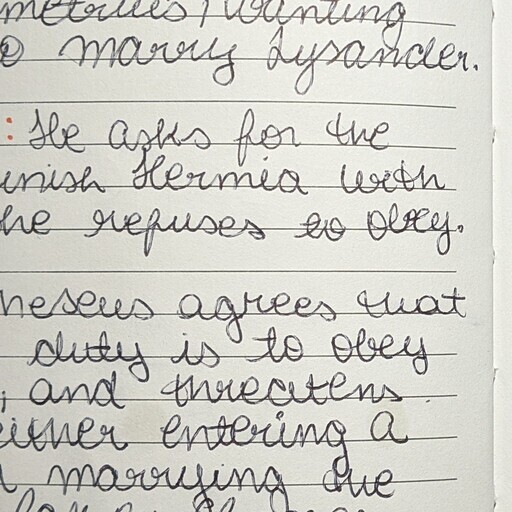 metrius, wanting
to marry Lysander.
: He asks for the
unish Hermia with
he refuses to obey.
heseus agrees that
duty is to obey
, and threatens
either entering a
marrying